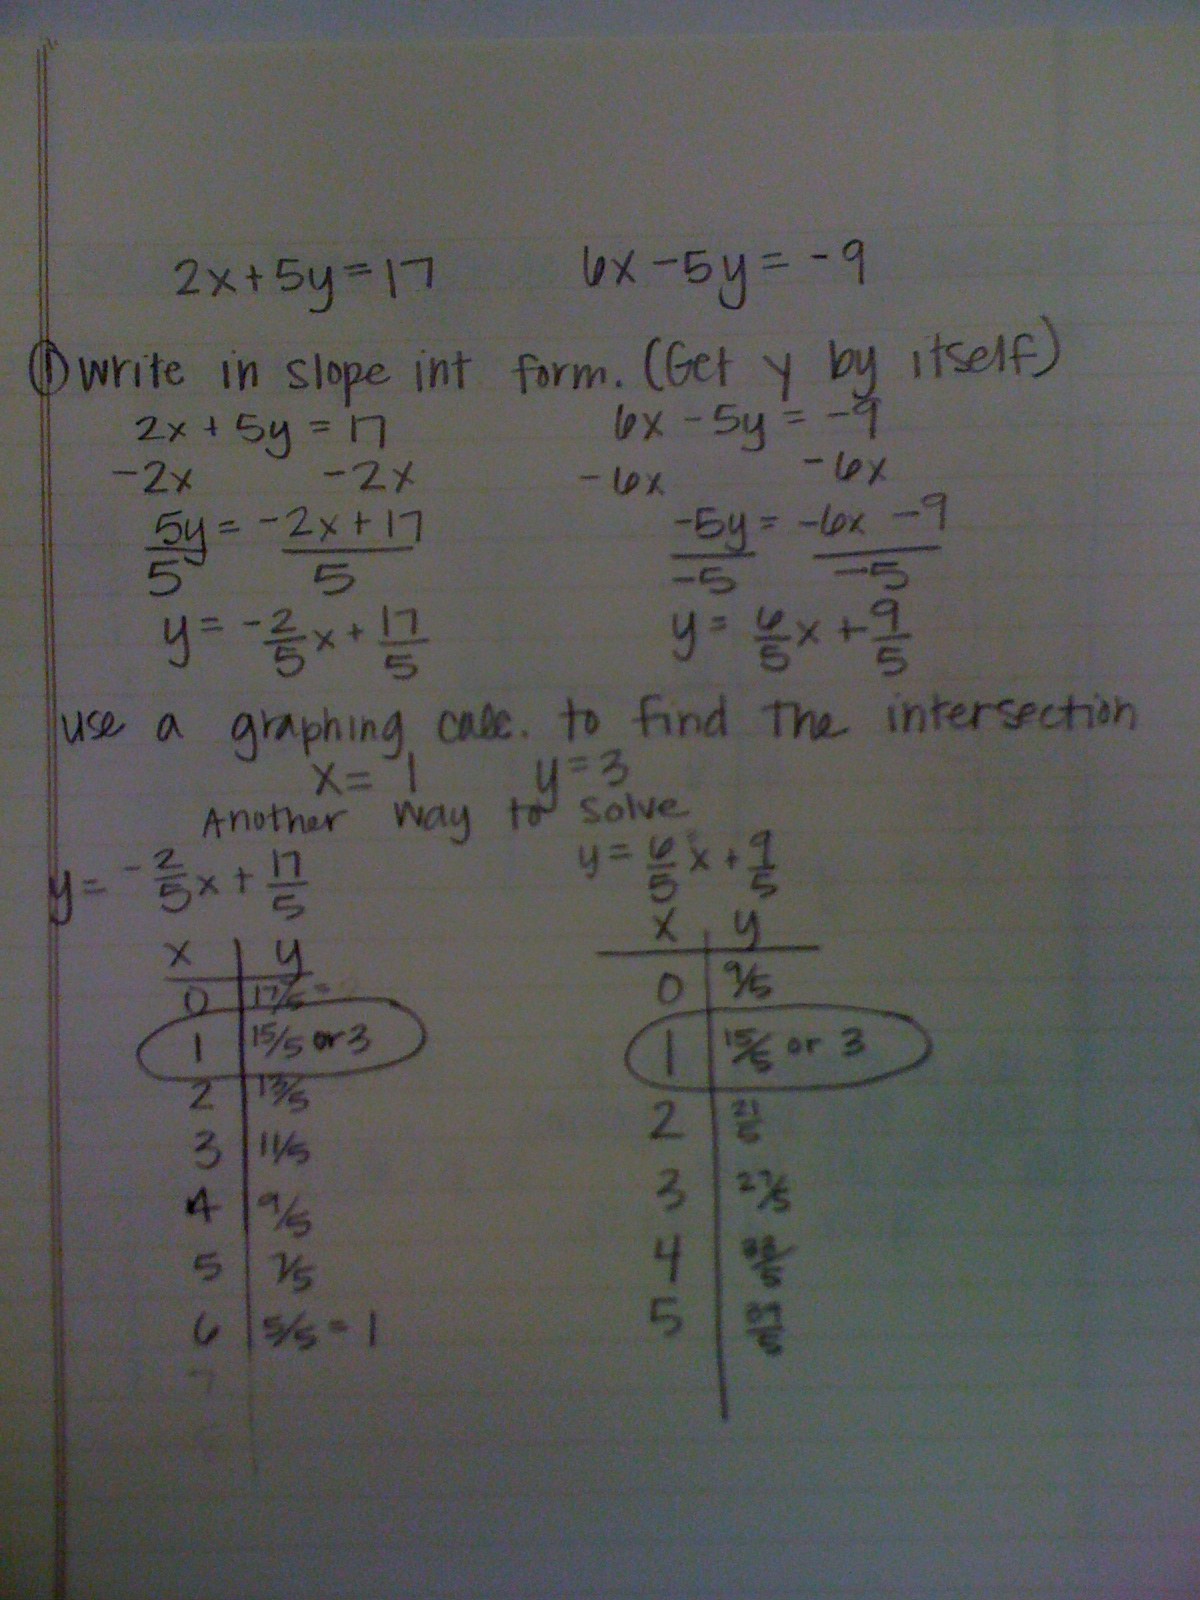 2x+5y=17 6x-5y=-9
① write in slope int form. (Get y by itself)
2x+5y=17 6x-5y=-9
-2x -2x -6x -6x
5y/5 = -2x+17/5 -5y/-5 = -6x-9/-5
y=-2/5x+17/5 y=6/5x+9/5
use a graphing calc. to find the intersection
x=1 y=3
Another way to solve
y=-2/5x+17/5 y=6/5x+9/5
x y x y
0 17/5= 0 9/5
1 15/5 or 3 1 15/5 or 3
2 13/5 2 21/5
3 11/5 3 27/5
4 9/5 4
5 7/5 5
6 5/5=1
7